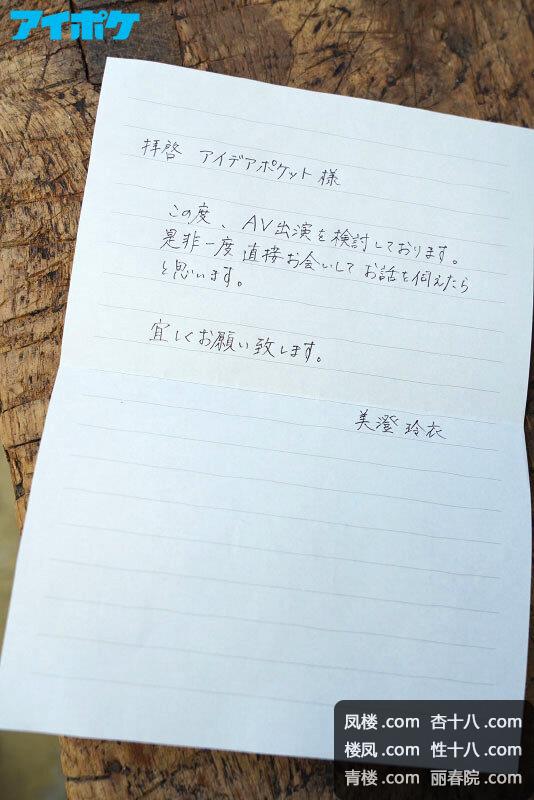 アイポケ
拝啓 アイデアポケット 様
この度、AV出演を検討しております。
是非一度 直接お会いして お話を伺えたら
と思います。
宜しくお願い致します。
美澄 玲衣
凤楼.com 杏十八.com
楼凤.com 性十八.com
青楼.com 丽春院.com